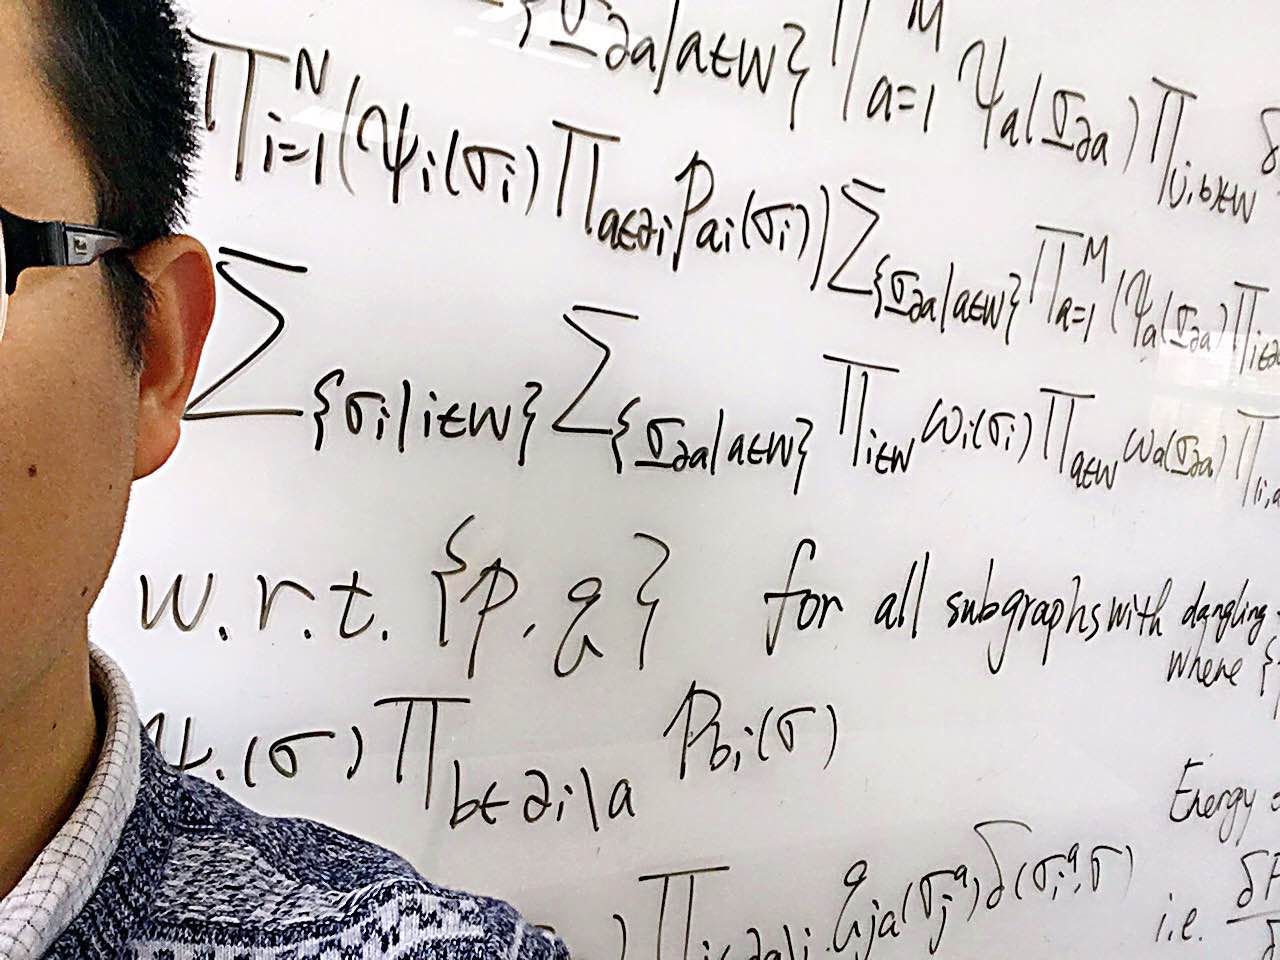 {σ̲∂a|a∈W} ∏a=1^M ψa(σ̲∂a) ∏(i,b)∈W δ
∏i=1^N(ψi(σi) ∏a∈∂i pai(σi)) ∑{σ̲∂a|a∈W} ∏a=1^M (ψa(σ̲∂a) ∏i∈∂
∑{σi|i∈W} ∑{σ̲∂a|a∈W} ∏i∈W ωi(σi) ∏a∈W ωa(σ̲∂a) ∏(i,a
w.r.t. {p,q} for all subgraphs with dangling
where {
(σ) ∏b∈∂i\a pbi(σ)
Energy
) ∏j∈∂a\i qja(σj^a)δ(σi^a,σ)
i.e. δF
δ